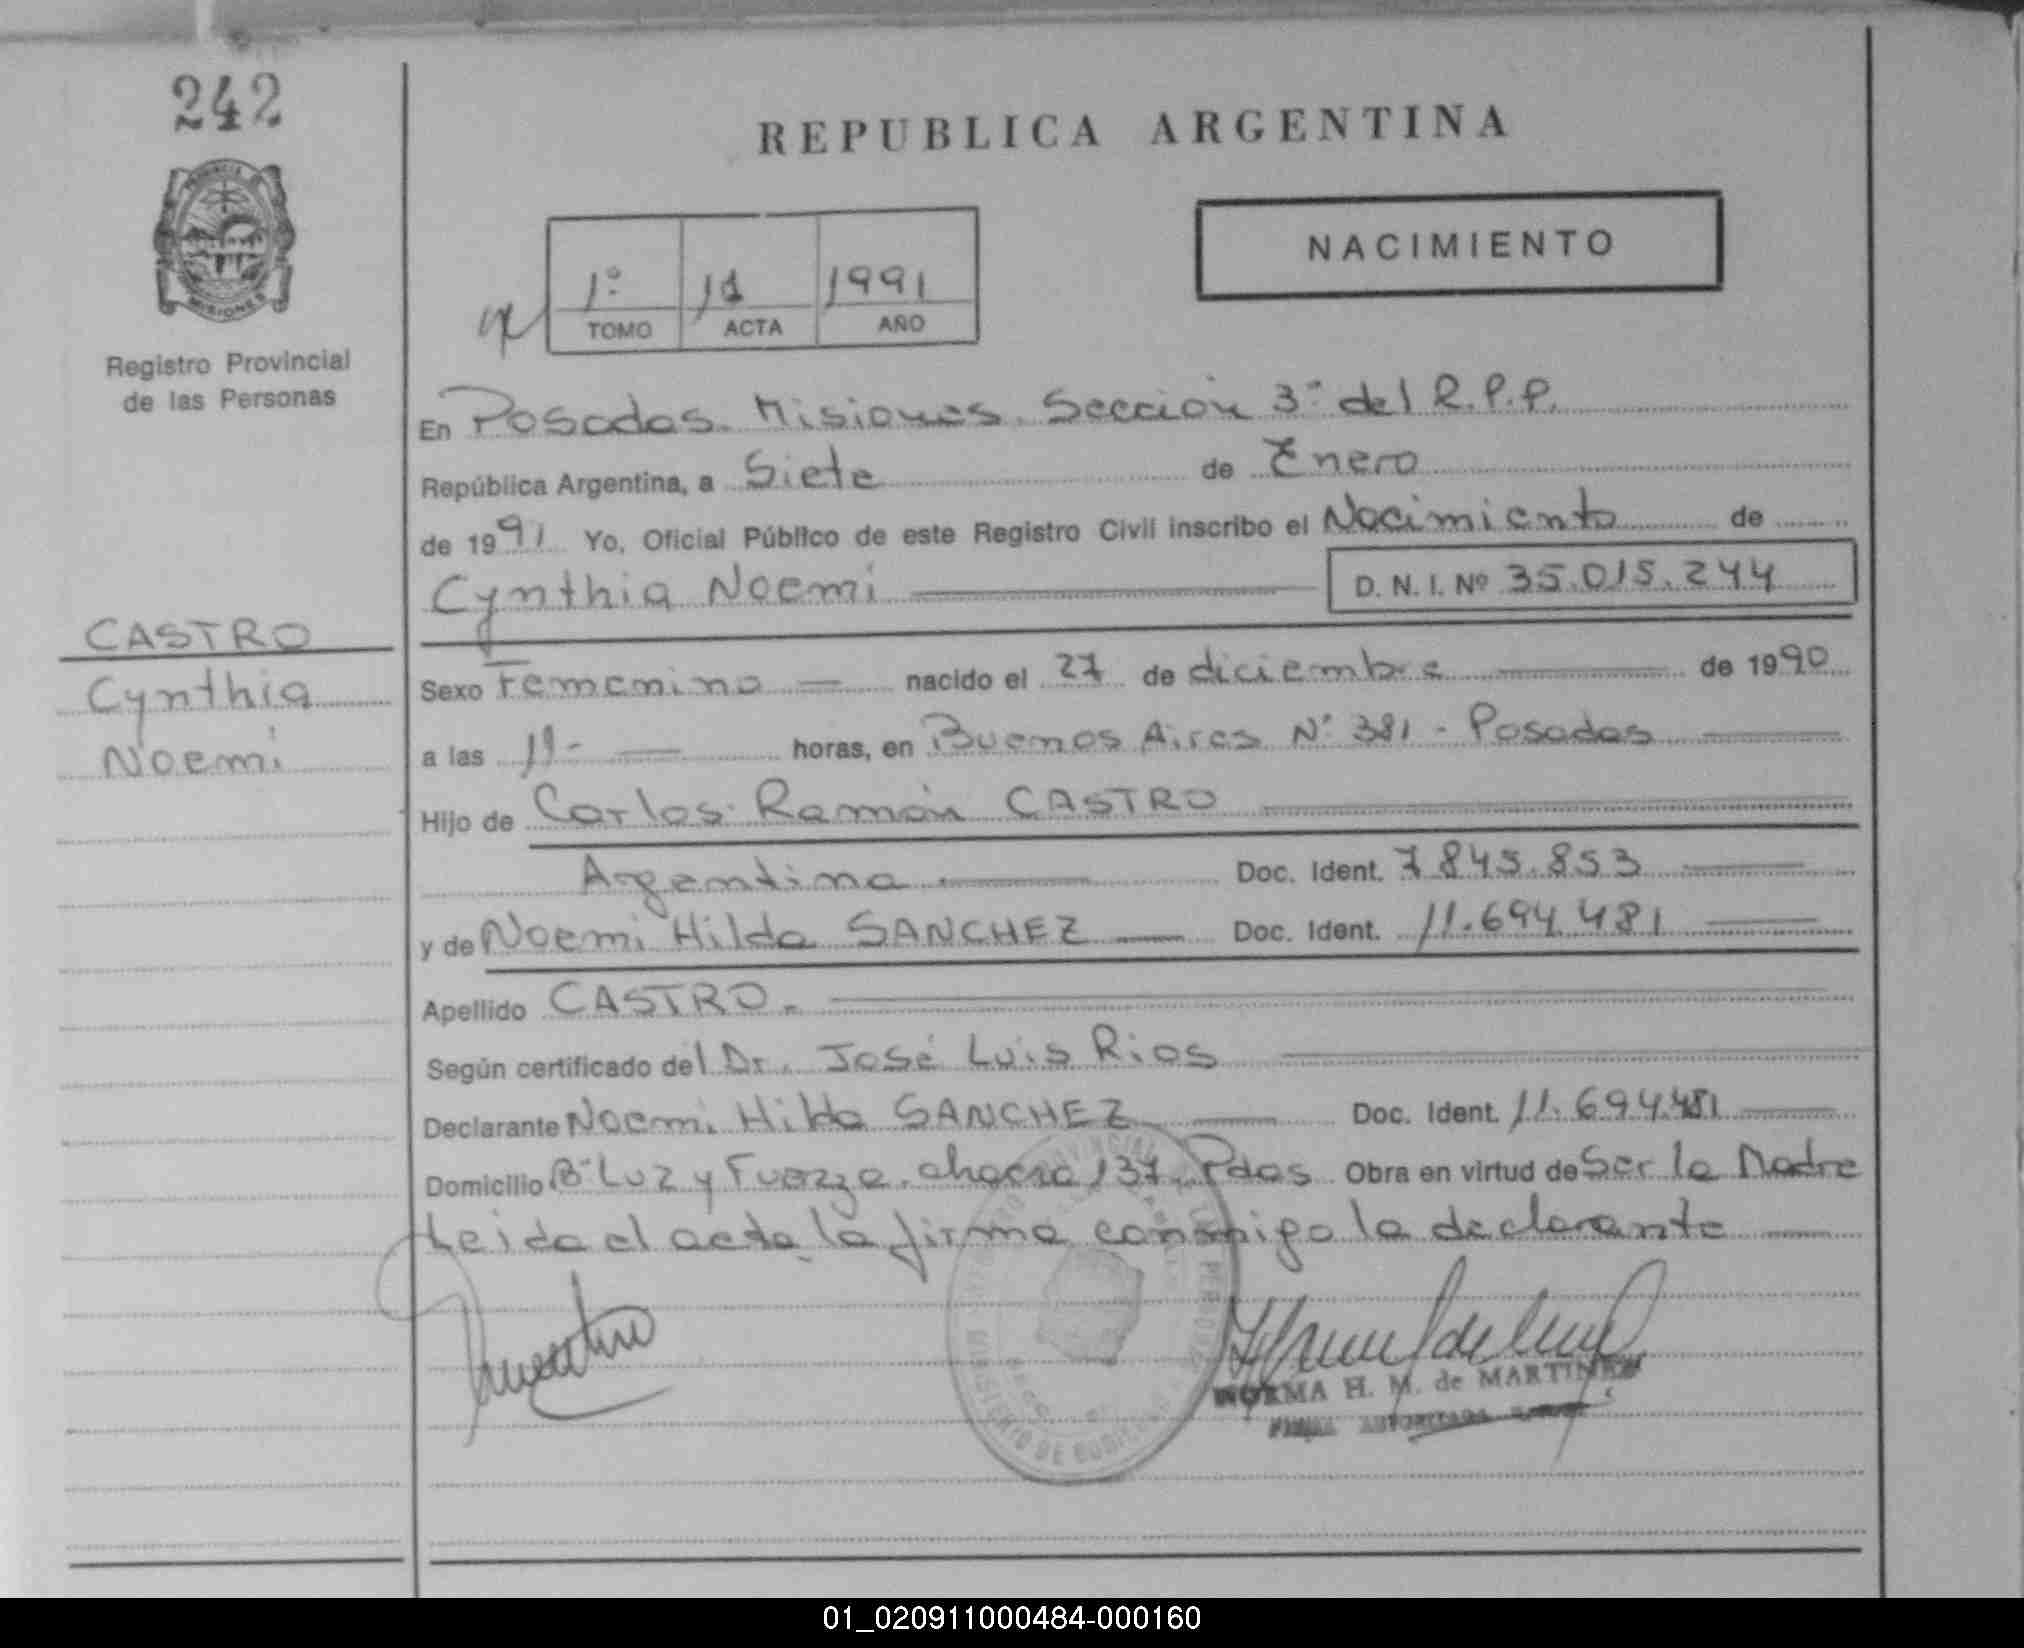 242
REPUBLICA ARGENTINA
NACIMIENTO
1º 11 1991
TOMO ACTA AÑO
PROVINCIA DE
MISIONES
Registro Provincial
de las Personas
En Posadas. Misiones. Sección 3º del R.P.P.
República Argentina, a Siete de Enero
de 1991 Yo, Oficial Público de este Registro Civil inscribo el Nacimiento de
Cynthia Noemi D. N. I. Nº 35.015.244
CASTRO
Cynthia
Noemi
Sexo Femenino nacido el 27 de diciembre de 1990
a las 11- horas, en Buenos Aires Nº 381 - Posadas
Hijo de Carlos Ramón CASTRO
Argentina Doc. Ident. 7845.853
y de Noemi Hilda SANCHEZ Doc. Ident. 11.694.481
Apellido CASTRO.-
Según certificado del Dr. José Luis Rios
Declarante Noemi Hilda SANCHEZ Doc. Ident. 11.694.481
Domicilio Bº Luz y Fuerza. chacra 137. Pdas Obra en virtud de Ser la Madre
Leida el acta la firma conmigo la declarante
NORMA H. M. de MARTINEZ
FIRMA AUTORIZADA
MINISTERIO DE GOBIERNO
01_020911000484-000160